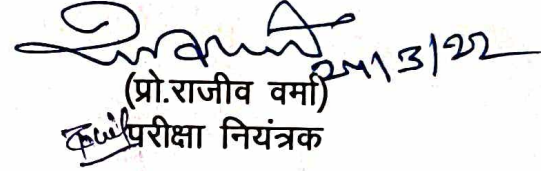 24/3/22
(प्रो.राजीव वर्मा)
परीक्षा नियंत्रक